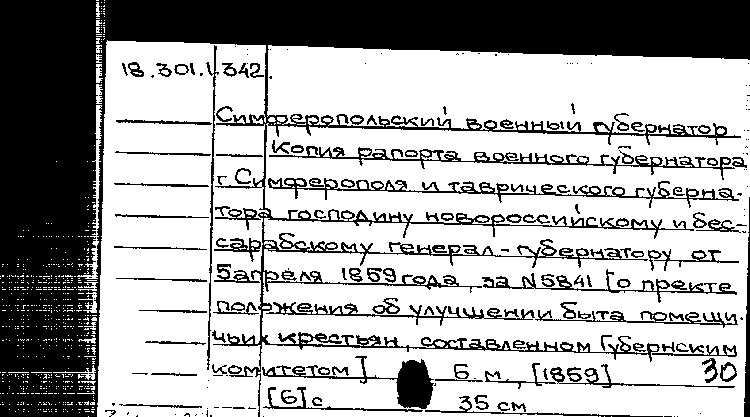 18.301.1.342.
Симферопольский военный губернатор
Копия рапорта военного губернатора
г. Симферополя и таврического губерна-
тора господину новороссийскому и бес-
сарабскому генерал-губернатору, от
5 апреля 1859 года, за N5841 [о пректе
положения об улучшении быта помещи-
чьих крестьян, составленном Губернским
комитетом]. Б.м., [1859] 30
[6]с. 35 см